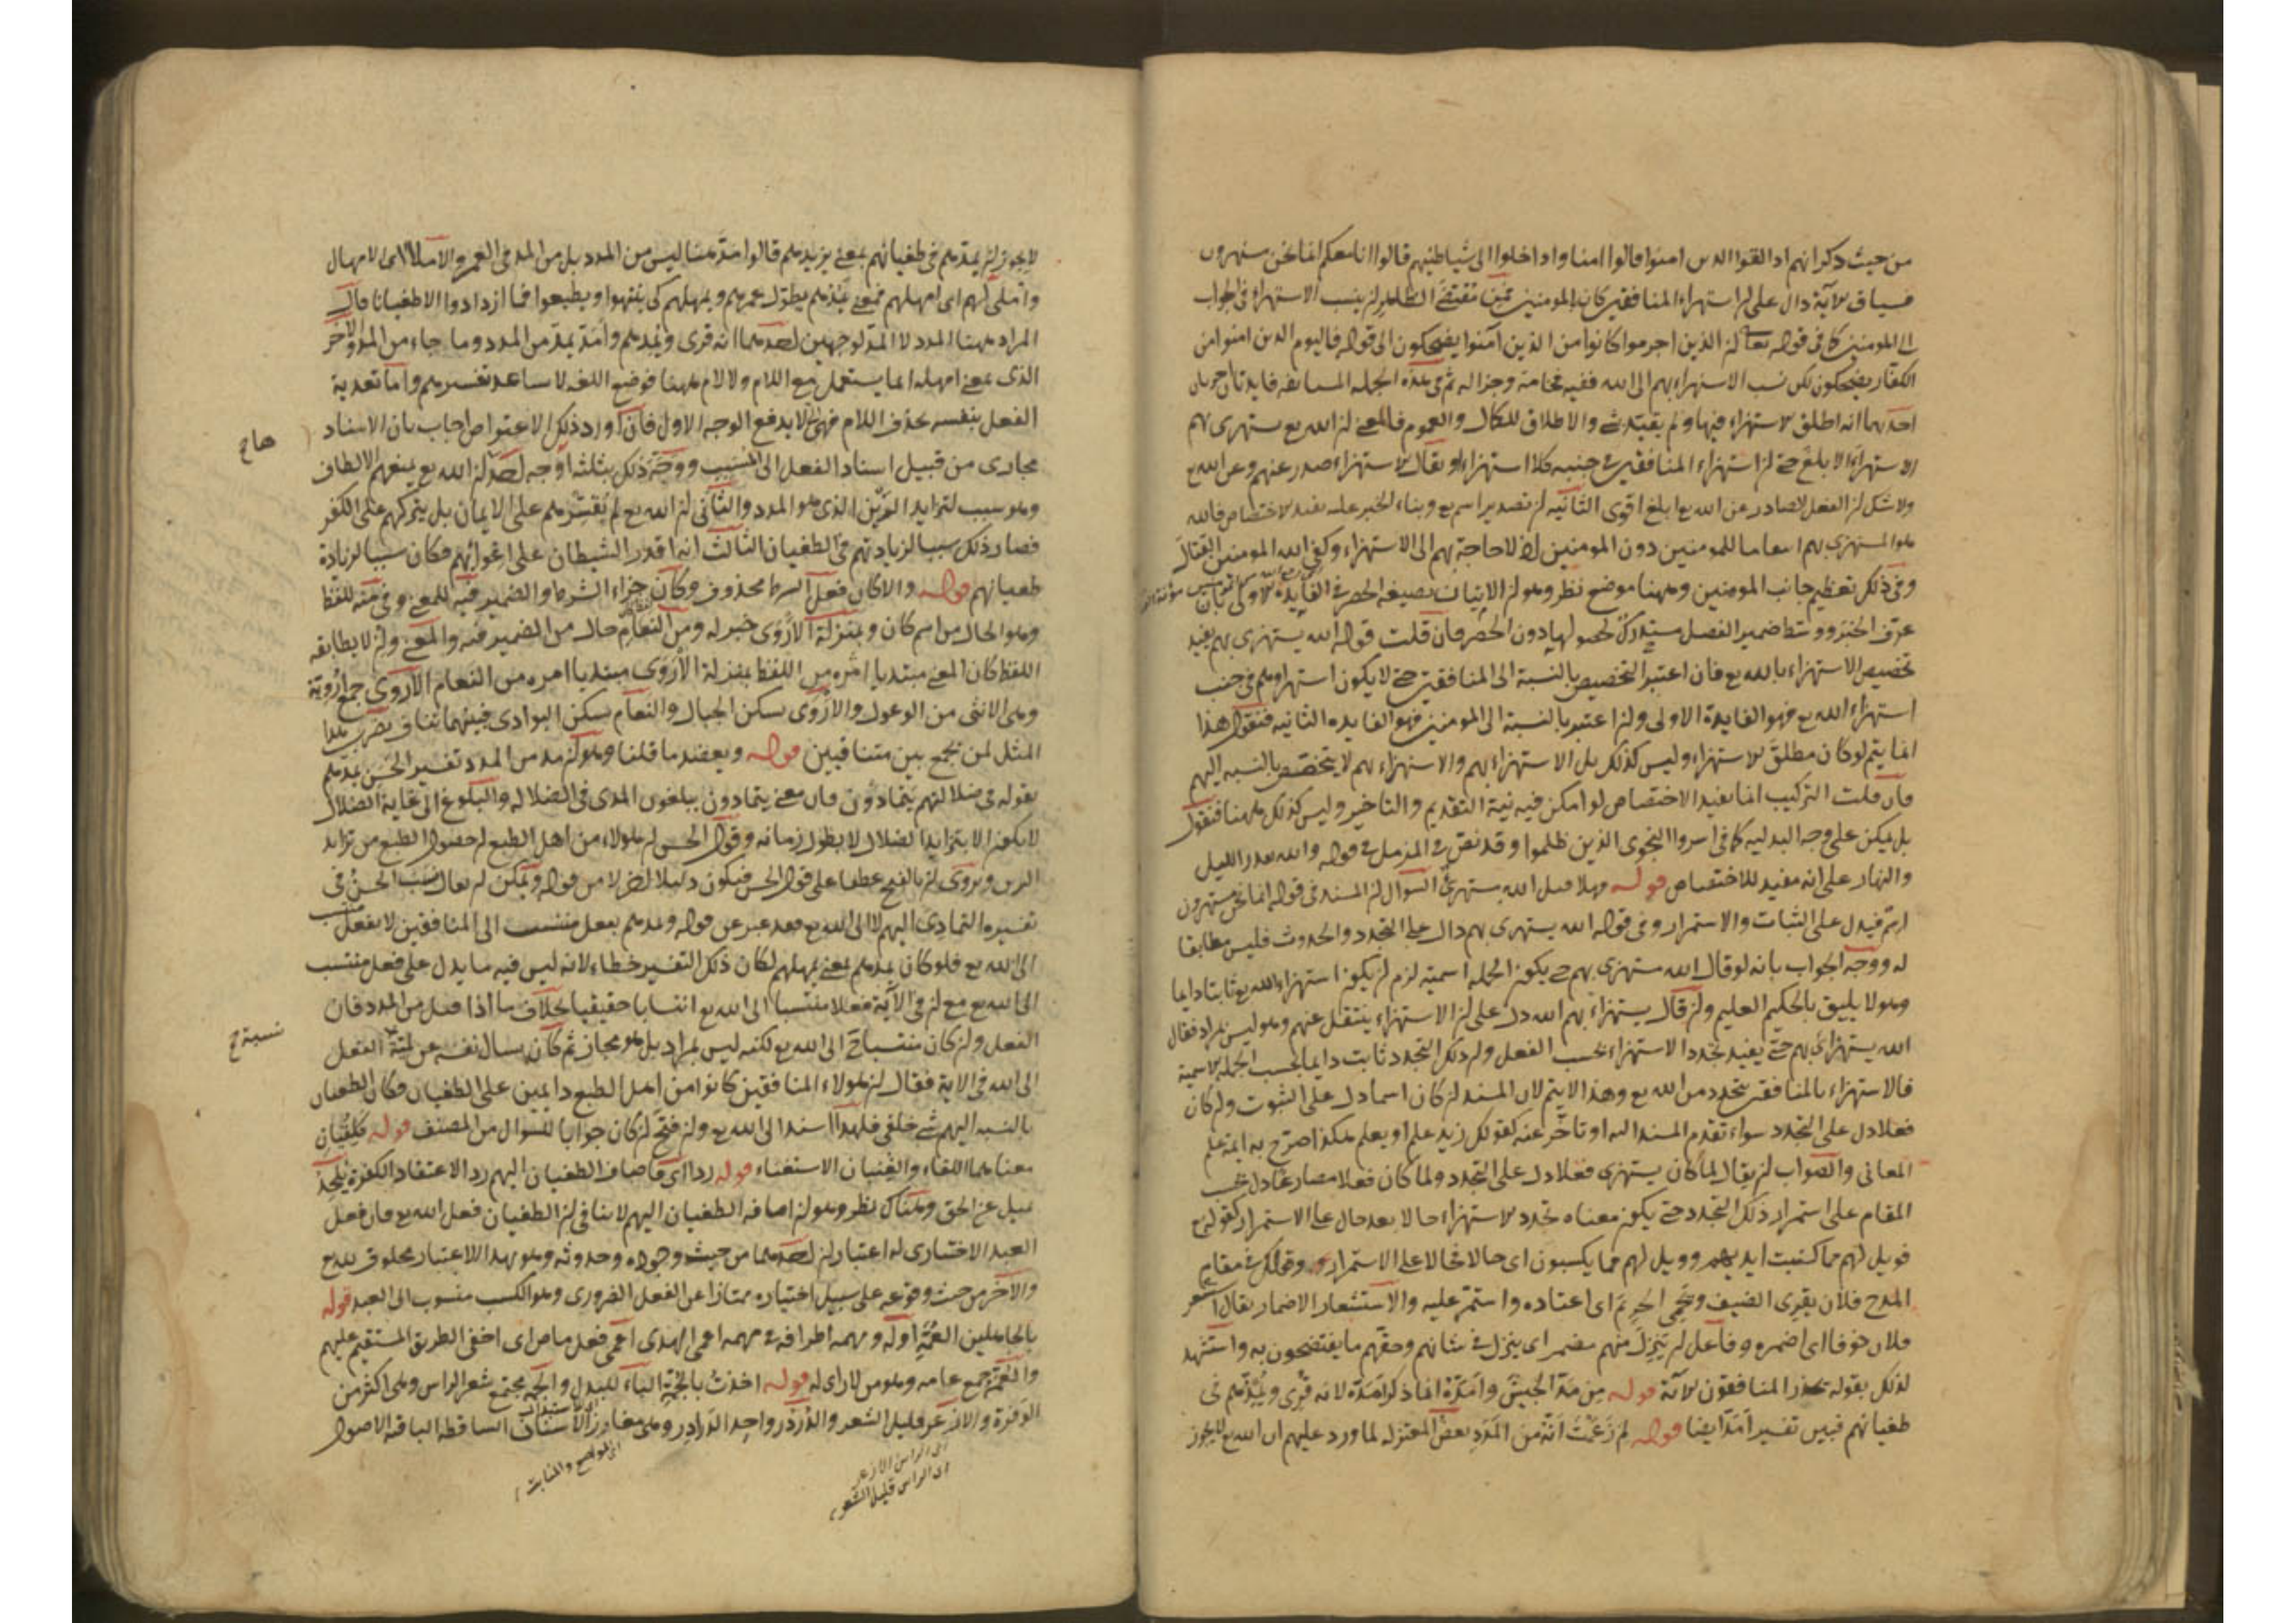 من حيث ذكر انهم اذا لقوا الذين امنوا قالوا امنا واذا خلوا الى شياطينهم قالوا انا معكم انما نحن مستهزءون
فسياق الآية دال على ان استهزاء المنافقين كان بالمومنين فمقتضى الظاهر ان ينسب الاستهزاء في الجواب
الى المومنين كما في قوله تعا ان الذين اجرموا كانوا من الذين آمنوا يضحكون الى قوله فاليوم الذين امنوا من
الكفار يضحكون لكن نسب الاستهزاء بهم الى الله ففيه فخامة وجزالة ثم في هذه الجملة المستانفه فايدتان
احديهما انه اطلق الاستهزاء فيها ولم يقيد بشئ والاطلاق للكمال والعموم فالمعنى ان الله يع يستهزى بهم
الاستهزاء الابلغ حتى ان استهزاء المنافقين في جنبه كلا استهزاء او يقال الاستهزاء صدر عنهم وعن الله يع
ولا شك ان الفعل الصادر عن الله يع ابلغ اقوى الثانيه ان تصدير اسم يع وبناء الخبر عليه يفيد الاختصاص فالله
هو المستهزى بهم انتقاما للمومنين دون المومنين اذ لا حاجة بهم الى الاستهزاء وكفى الله المومنين القتال
وفي ذلك تعظيم جانب المومنين وههنا موضع نظر وهو ان الاتيان بصيغه الحصر في الفايدة الاولى بان
عرف الخبر ووسط ضمير الفصل مستدرك لحصولها دون الحصر فان قلت قوله الله يستهزى بهم يفيد
تخصيص الاستهزاء بالله يع فان اعتبر التخصيص بالنسبة الى المنافقين حتى لا يكون استهزاوهم في جنب
استهزاء الله يع فهو الفايدة الاولى وان اعتبر بالنسبة الى المومنين فهو الفايده الثانيه فنقول هذا
انما يتم لو كان مطلق الاستهزاء وليس كذلك بل الاستهزاء بهم والاستهزاء بهم لا يتخصص بالنسبه اليهم
فان قلت التركيب انما يفيد الاختصاص لو امكن فيه نية التقديم والتاخير وليس كذلك ههنا فنقول
بل يمكن على وجه البدليه كما في اسروا النجوى الذين ظلموا وقد نص في المزمل في قوله والله يقدر الليل
والنهار على انه مفيد للاختصاص قوله وهلا قيل الله مستهزئ السوال ان المسند في قوله انما نحن مستهزءون
اسم فيدل على الثبات والاستمرار وفي قوله الله يستهزى بهم دال على التجدد والحدوث فليس مطابقا
له ووجه الجواب بانه لو قال الله مستهزى بهم حتى يكون الجملة اسمية لزم ان يكون استهزاء الله يع ثابتا دايما
وهو لا يليق بالحكيم العليم ولو قال يستهزاء بهم الله دل على ان الاستهزاء ينتقل عنهم وهو ليس بمراد فقال
الله يستهزاى بهم حتى يفيد تجدد الاستهزاء بحسب الفعل وان ذلك التجدد ثابت دايما بحسب الجملة الاسمية
فالاستهزاء بالمنافقين يتجدد من الله يع وهذا لا يتم لان المسند ان كان اسما دل على الثبوت وان كان
فعلا دل على التجدد سواء تقدم المسند اليه او تاخر عنه كقولك زيد علم او يعلم هكذا صرح به ايمة علم
المعاني والصواب ان يقال لما كان يستهزى فعلا دل على التجدد ولما كان فعلا مضارعا دل بحسب
المقام على استمرار ذلك التجدد حتى يكون معناه تجدد الاستهزاء حالا بعد حال على الاستمرار كقوله يع
فويل لهم مما كتبت ايديهم وويل لهم مما يكسبون اى حالا فحالا على الاستمرار وقولك في مقام
المدح فلان يقرى الضيف ويحمى الحريم اى اعتاده واستمر عليه والاستشعار الاضمار يقال استشعر
فلان خوفا اى اضمره وفاعل ان ينزل منهم مضمر اى ينزل في شانهم وحقهم ما يفتضحون به واستشهد
لذلك بقوله يحذر المنافقون الآية قوله من مد الجيش وامده انما ذكر امده لانه قرى ويمدهم في
طغيانهم فبين تفسير امد ايضا قوله لم زعمت انه من المدد بعض المعتزله لما ورد عليهم ان الله يع لا يجوز
لا يجوز ان يمدهم في طغيانهم بمعنى يزيدهم قالوا مد ههنا ليس من المدد بل من المد في العمر والاملاء اى الامهال
واملى لهم اى امهلهم فمعنى يمدهم يطول عمرهم ويمهلهم كى ينتهوا ويطيعوا فما ازدادوا الا طغيانا قال
المراد ههنا المدد لا المد لوجهين احدهما انه قرى ويمدهم وامد يمد من المدد وما جاء من المد والآخر
الذى بمعنى امهله انما يستعمل مع اللام ولا لام ههنا فوضع اللغه لا يساعد تفسيرهم واما تعدية
الفعل بنفسه بحذف اللام فهى لا يدفع الوجه الاول فان اورد ذلك الاعتراض اجاب بان الاسناد
مجازى من قبيل اسناد الفعل الى المسبب ووجه ذلك بثلثة اوجه احدها ان الله يع يمنعهم الالطاف
وهو سبب لتزايد الرين الذى هو المدد والثانى ان الله يع لم يقسرهم على الايمان بل يتركهم على الكفر
فصار ذلك سببا لزيادتهم في الطغيان الثالث انه اقدر الشيطان على اغوائهم فكان سببا لزيادة
طغيانهم قوله والا كان فعل الشرط محذوف وكان جزاء الشرط والضمير فيه للمعنى وفي منه للفظ
وهو الحال من اسم كان وبمنزلة الاروى خبر له ومن النعام حال من الضمير فيه والمعنى وان لا يطابقه
اللفظ كان المعنى مبتديا امره من اللفظ بمنزلة الاروى مبتديا امره من النعام الاروى جمع اروية
وهى الانثى من الوعول والاروى يسكن الجبال والنعام يسكن البوادى فبينهما تناف يضرب هذا
المثل لمن يجمع بين متنافيين قوله ويعضد ما قلنا وهو ان مد من المدد تفسير الحسن يمدهم
بقوله في ضلالتهم يتمادون فان معنى يتمادون يبلغون المدى في الضلاله والبلوغ الى غاية الضلال
لا يكون الا بتزايد الضلال لا بطول زمانه وقول الحسن ان هولاء من اهل الطبع لحصول الطبع من تزايد
الرين ويروى ان بالفتح عطفا على قول الحسن فيكون دليلا اخر لا من قوله ويمكن ان يقال نسب الحسن في
تفسيره التمادى اليهم لا الى الله يع فقد عبر عن قوله ويمدهم بفعل منتسب الى المنافقين لا بفعل منتسب
الى الله يع فلو كان يمدهم بمعنى يمهلهم لكان ذلك التفسير خطاء لانه ليس فيه ما يدل على فعل منتسب
الى الله يع مع ان في الآية فعلا منتسبا الى الله يع انتسابا حقيقيا بخلاف ما اذا قيل من المدد فان
الفعل وان كان منتسبا ح الى الله يع لكنه ليس بمراد بل هو مجاز ثم كان يسال نفسه عن نسبة الفعل
الى الله في الاية فقال ان هولاء المنافقين كانوا من اهل الطبع دايمين على الطغيان فكان الطغيان
بالنسبه اليهم شئ خلقى فلهذا اسند الى الله يع وان فتح ان كان جوابا للسوال من المصنف قوله كلقيان
معناهما اللقاء والغنيان الاستغناء قوله ردا اى فاضاف الطغيان اليهم رد الاعتقاد الكفرة يلحد
يميل عن الحق وهناك نظر وهو ان اضافه الطغيان اليهم لا ينافى ان الطغيان فعل الله يع فان فعل
العبد الاختيارى له اعتباران احدهما من حيث وجوده وحدوثه وهو بهذا الاعتبار مخلوق لله يع
والآخر من حيث وقوعه على سبيل اختياره ممتازا عن الفعل الضرورى وهو الكسب منسوب الى العبد قوله
بالجاهلين العمه اوله ومهمه اطرافه في مهمه اعمى الهدى اعمى فعل ماض اى اخفى الطريق المستقيم عليهم
والعمه جمع عامه وهو من لا راى له قوله اخذت بالجمة الباء للبدل والجمة مجتمع شعر الراس وهى اكثر من
الوفرة والازعر قليل الشعر والدردر واحد الدرادر وهى مغارز الاسنان الساقطه الباقيه الاصول
اى الراس الازعر
اى الراس قليل الشعر
اى المواضع والمنابت
نسبة ح